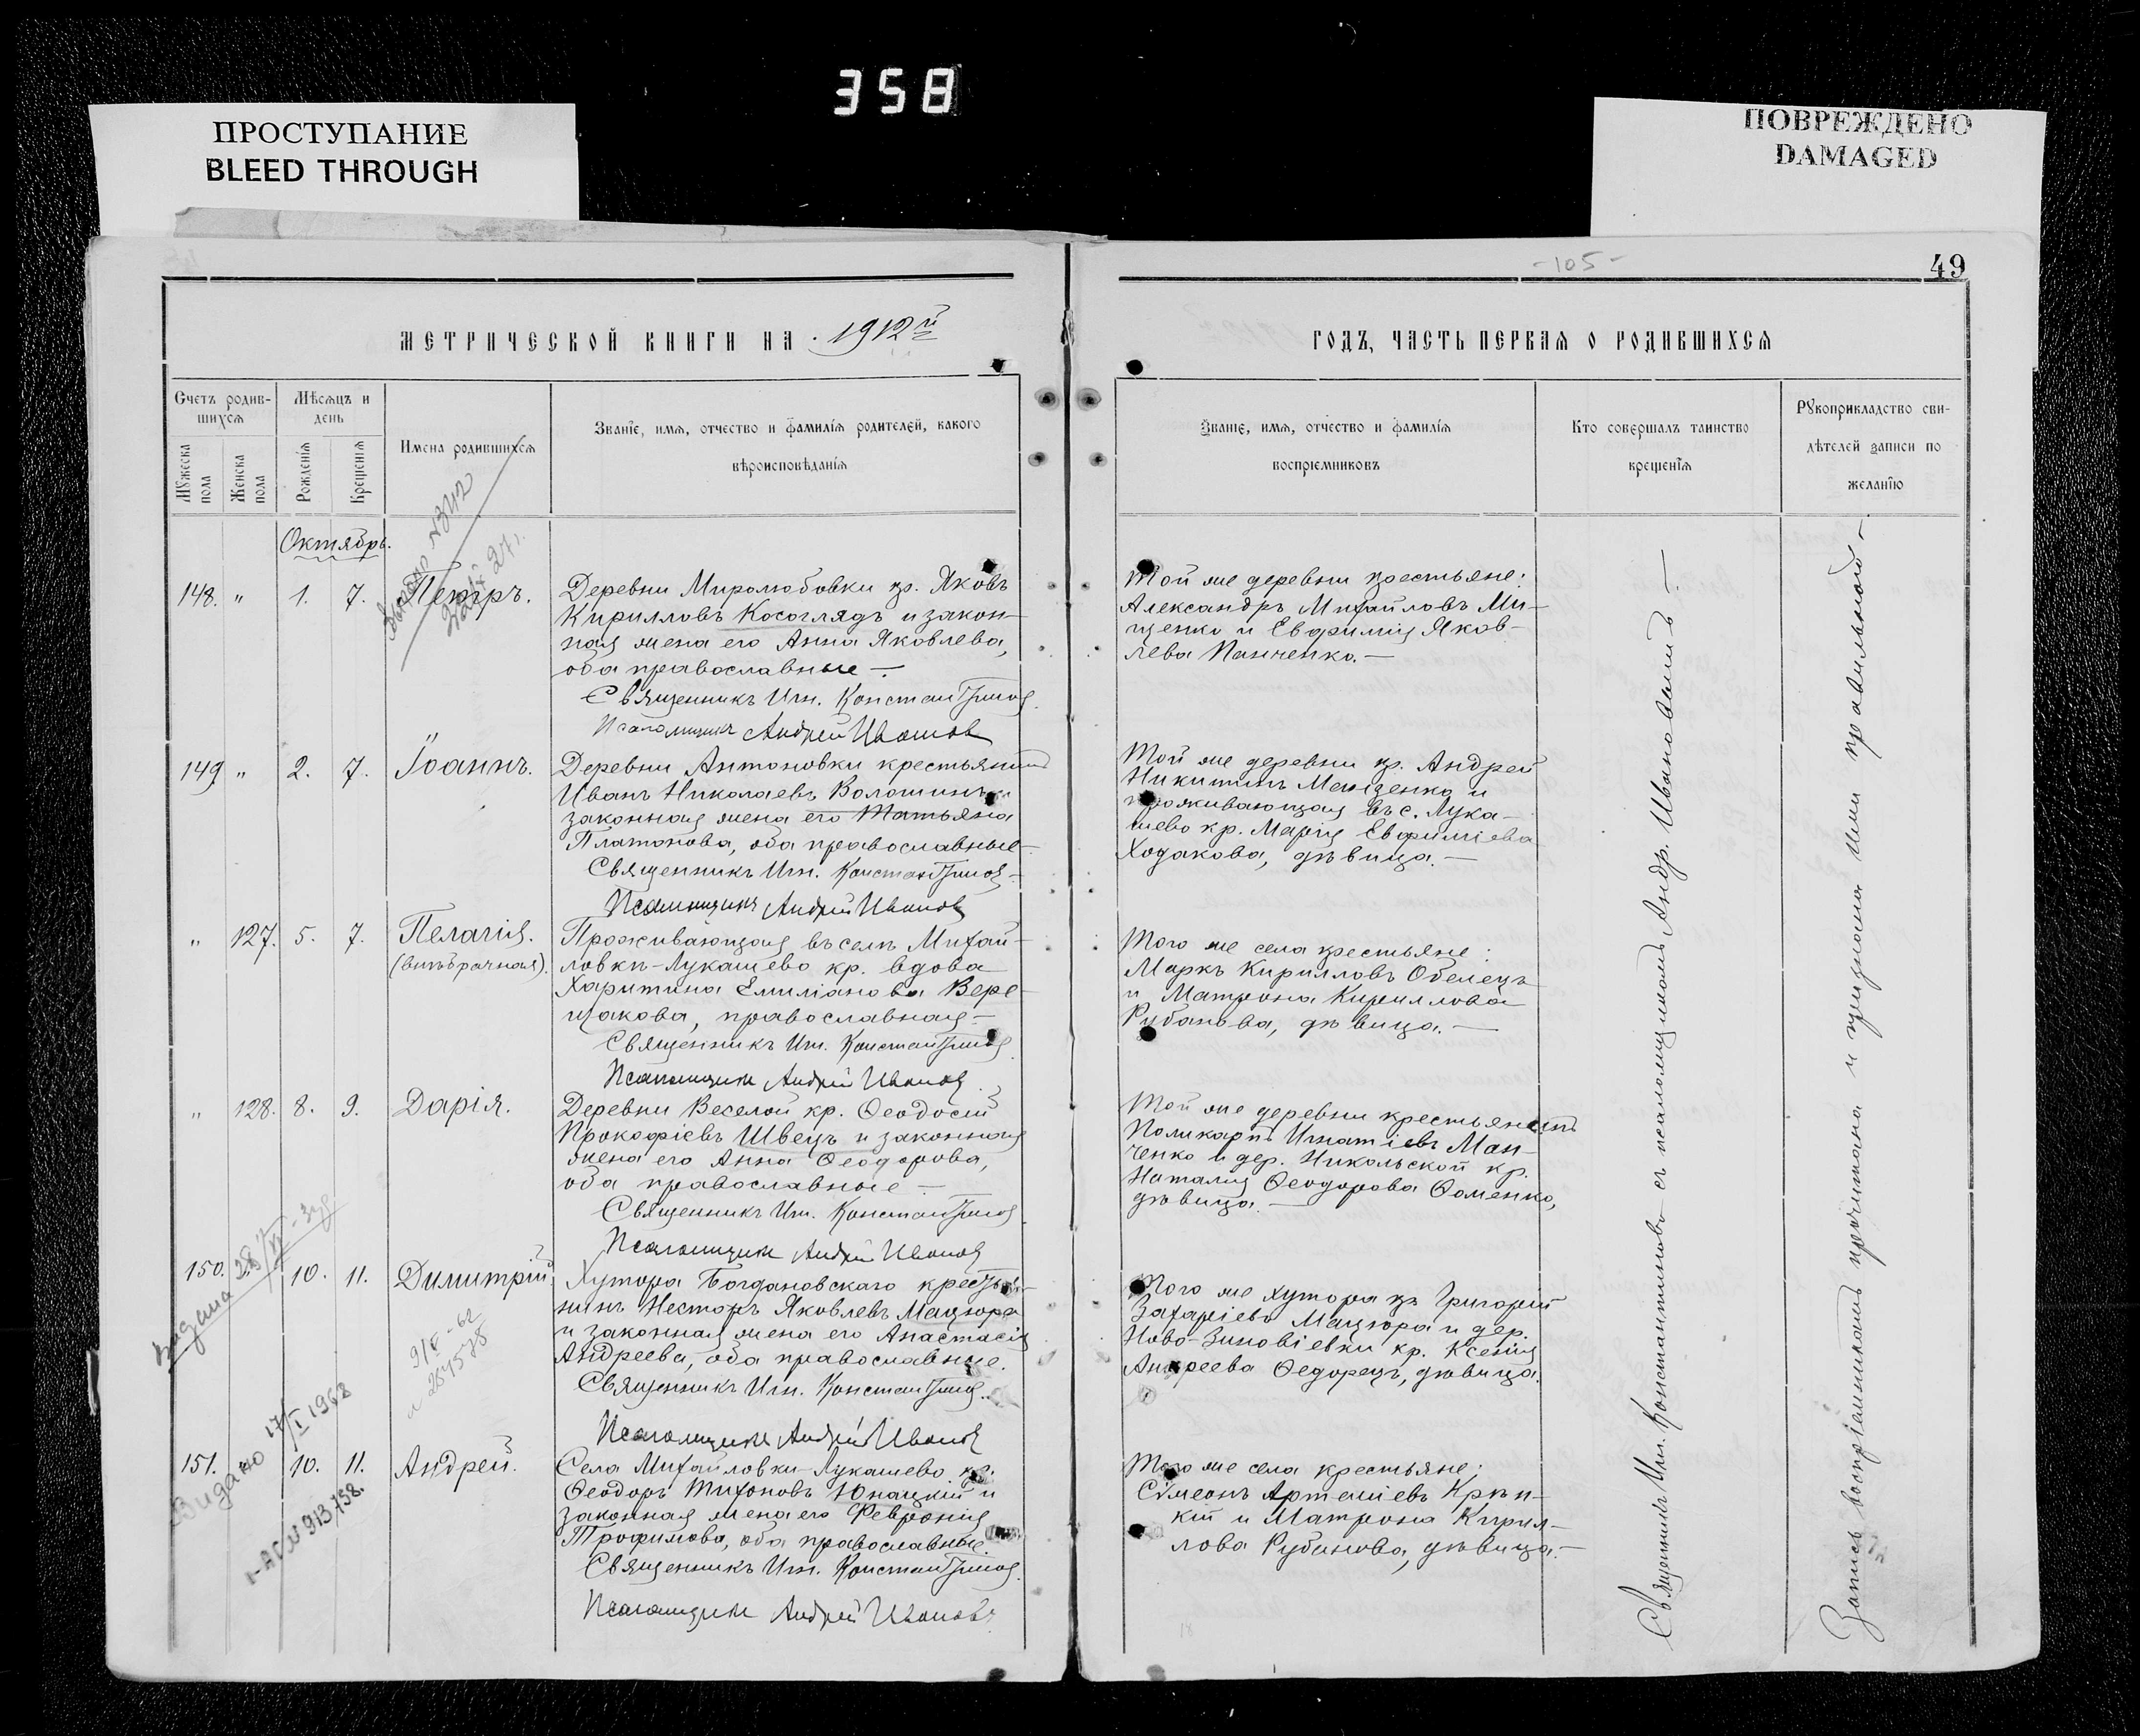 358
ПРОСТУПАНИЕ
BLEED THROUGH
ПОВРЕЖДЕНО
DAMAGED
МЕТРИЧЕСКОЙ КНИГИ НА 1912й
Счетъ родив-
шихся
Мужеска
пола
Женска
пола
Мѣсяцъ и
день
Рожденія
Крещенія
Имена родившихся
Званіе, имя, отчество и фамилія родителей, какого
вѣроисповѣданія
Октябрь.
148. " 1. 7. Петръ.
Деревни Миролюбовки кр. Яковъ
Кирилловъ Косоглядъ и закон-
ная жена его Анна Яковлева,
оба православные —
Священникъ Игн. Константинов
Псаломщикъ Андрей Иванов
149. " 2. 7. Іоаннъ.
Деревни Антоновки крестьянинъ
Иванъ Николаевъ Волошинъ и
законная жена его Татьяна
Платонова, оба православные —
Священникъ Игн. Константинов
Псаломщикъ Андрей Иванов
" 127. 5. 7. Пелагія.
(внѣбрачная).
Проживающая въ селѣ Михай-
ловкѣ-Лукашево кр. вдова
Харитина Емиліанова Вере-
щакова, православная —
Священникъ Игн. Константинов
Псаломщикъ Андрей Иванов
" 128. 8. 9. Дарія.
Деревни Веселой кр. Ѳеодосій
Прокофіевъ Швецъ и законная
жена его Анна Ѳеодорова,
оба православные —
Священникъ Игн. Константинов
Псаломщикъ Андрей Иванов
150. " 10. 11. Димитрій
Хутора Богдановскаго крестья-
нинъ Несторъ Яковлевъ Мацюра
и законная жена его Анастасія
Андреева, оба православные.
Священникъ Игн. Константинов
Псаломщикъ Андрей Иванов
9/V-62
Видано 17/I 1968
I-АС N 913758.
151. " 10. 11. Андрей.
Села Михайловки-Лукашево кр.
Ѳеодоръ Тихоновъ Юнацкій и
законная жена его Феронія
Трофимова, оба православные.
Священникъ Игн. Константинов
Псаломщикъ Андрей Ивановъ
-105-
49
ГОДЪ, ЧАСТЬ ПЕРВАЯ О РОДИВШИХСЯ
Званіе, имя, отчество и фамилія
воспріемниковъ
Кто совершалъ таинство
крещенія
Рукоприкладство сви-
дѣтелей записи по
желанію
Той же деревни крестьяне:
Александръ Михайловъ Ми-
щенко и Евфимія Яков-
лева Панченко. —
Той же деревни кр. Андрей
Никитинъ и
проживающая въ с. Лука-
шево кр. Марія Евфиміева
Ходакова, дѣвица. —
Того же села крестьяне:
Маркъ Кирилловъ Обелецъ
и Матрона Кириллова
Рубанова, дѣвица. —
Той же деревни крестьянинъ
Поликарпъ Игнатіевъ Ман-
ченко и дер. Никольской кр.
Наталія Ѳеодорова Ѳоменко,
дѣвица. —
Того же хутора кр. Григорій
Захаріевъ Мацюра и дер.
Ново-Зиновіевки кр. Ксенія
Андреева Ѳедорецъ, дѣвица.
Того же села крестьяне:
Сѵмеонъ Артеміевъ Крѣп-
кій и Матрона Кирил-
лова Рубанова, дѣвица. —
Священникъ Игн. Константиновъ съ псаломщикомъ Андр. Ивановымъ —
Запись воспріемникамъ прочитана и признана ими правильной —